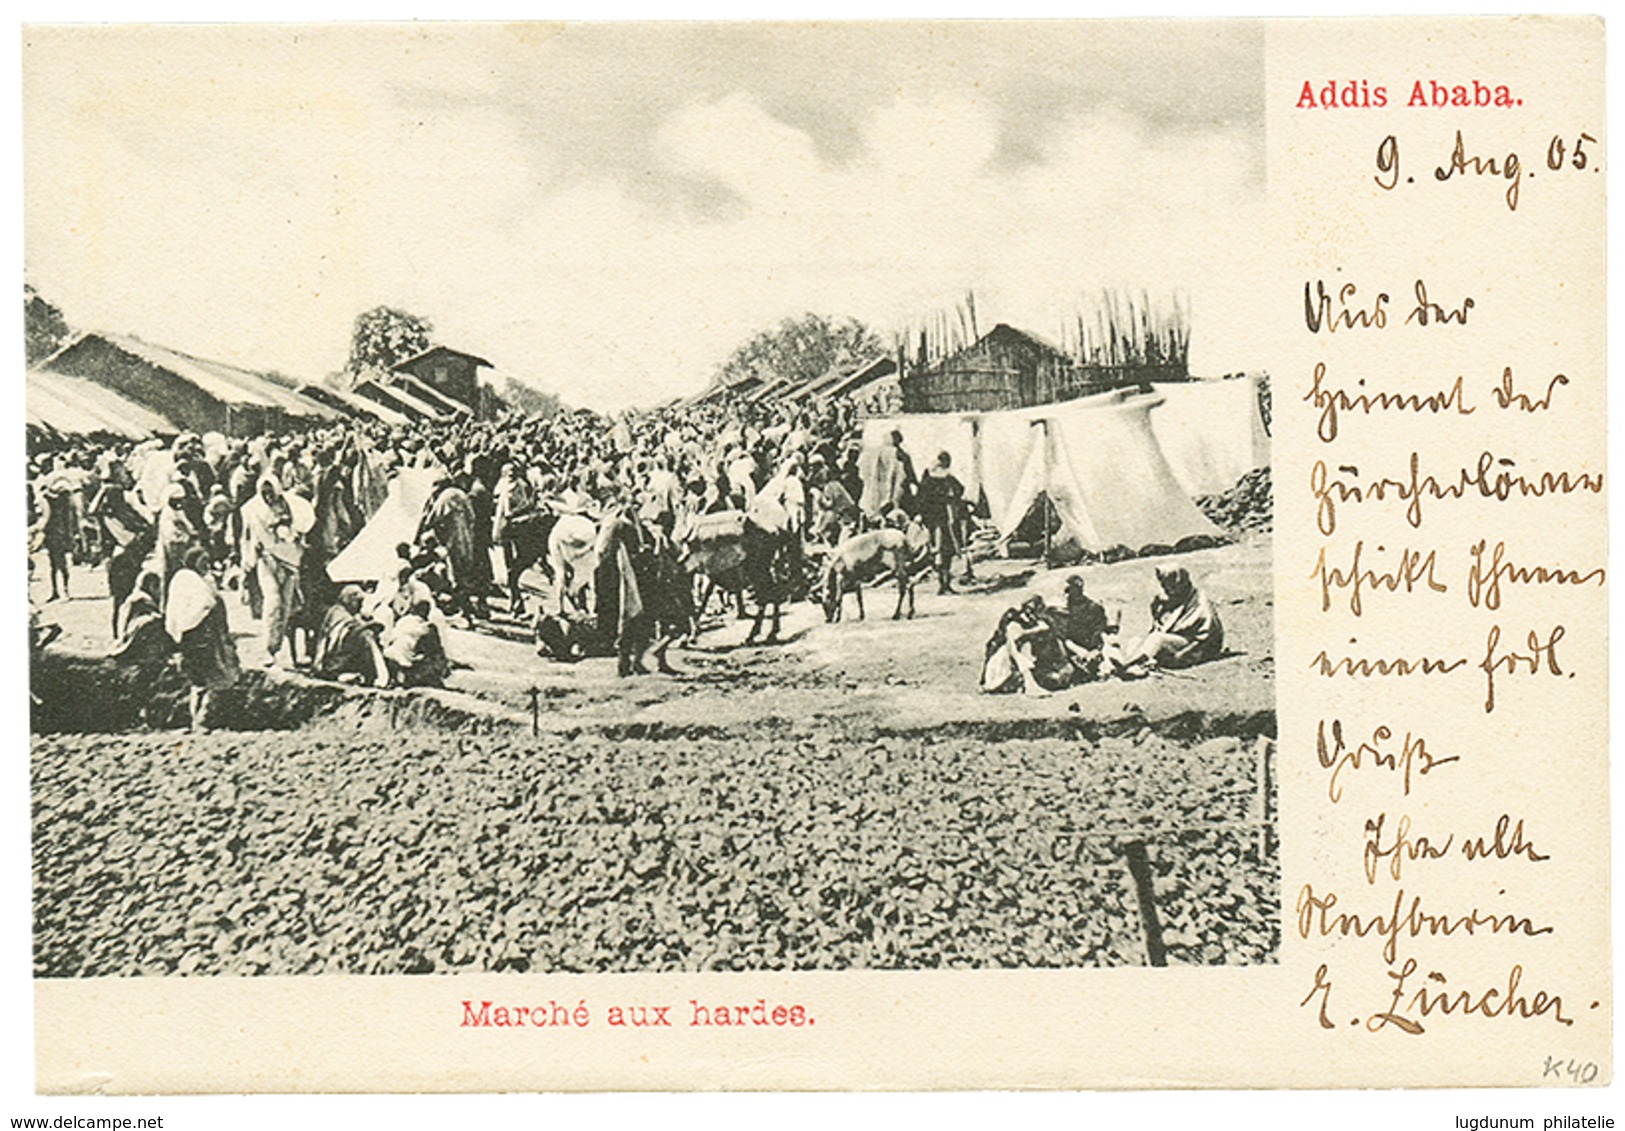 Addis Ababa.
9. Aug. 05.
Aus der
Heimat der
Zürcherlöwen
schickt Ihnen
einen frdl.
Gruß
Ihre alte
Nachbarin
E. Zürcher.
Marché aux hardes.
K40
delcampe.net
lugdunum philatelie